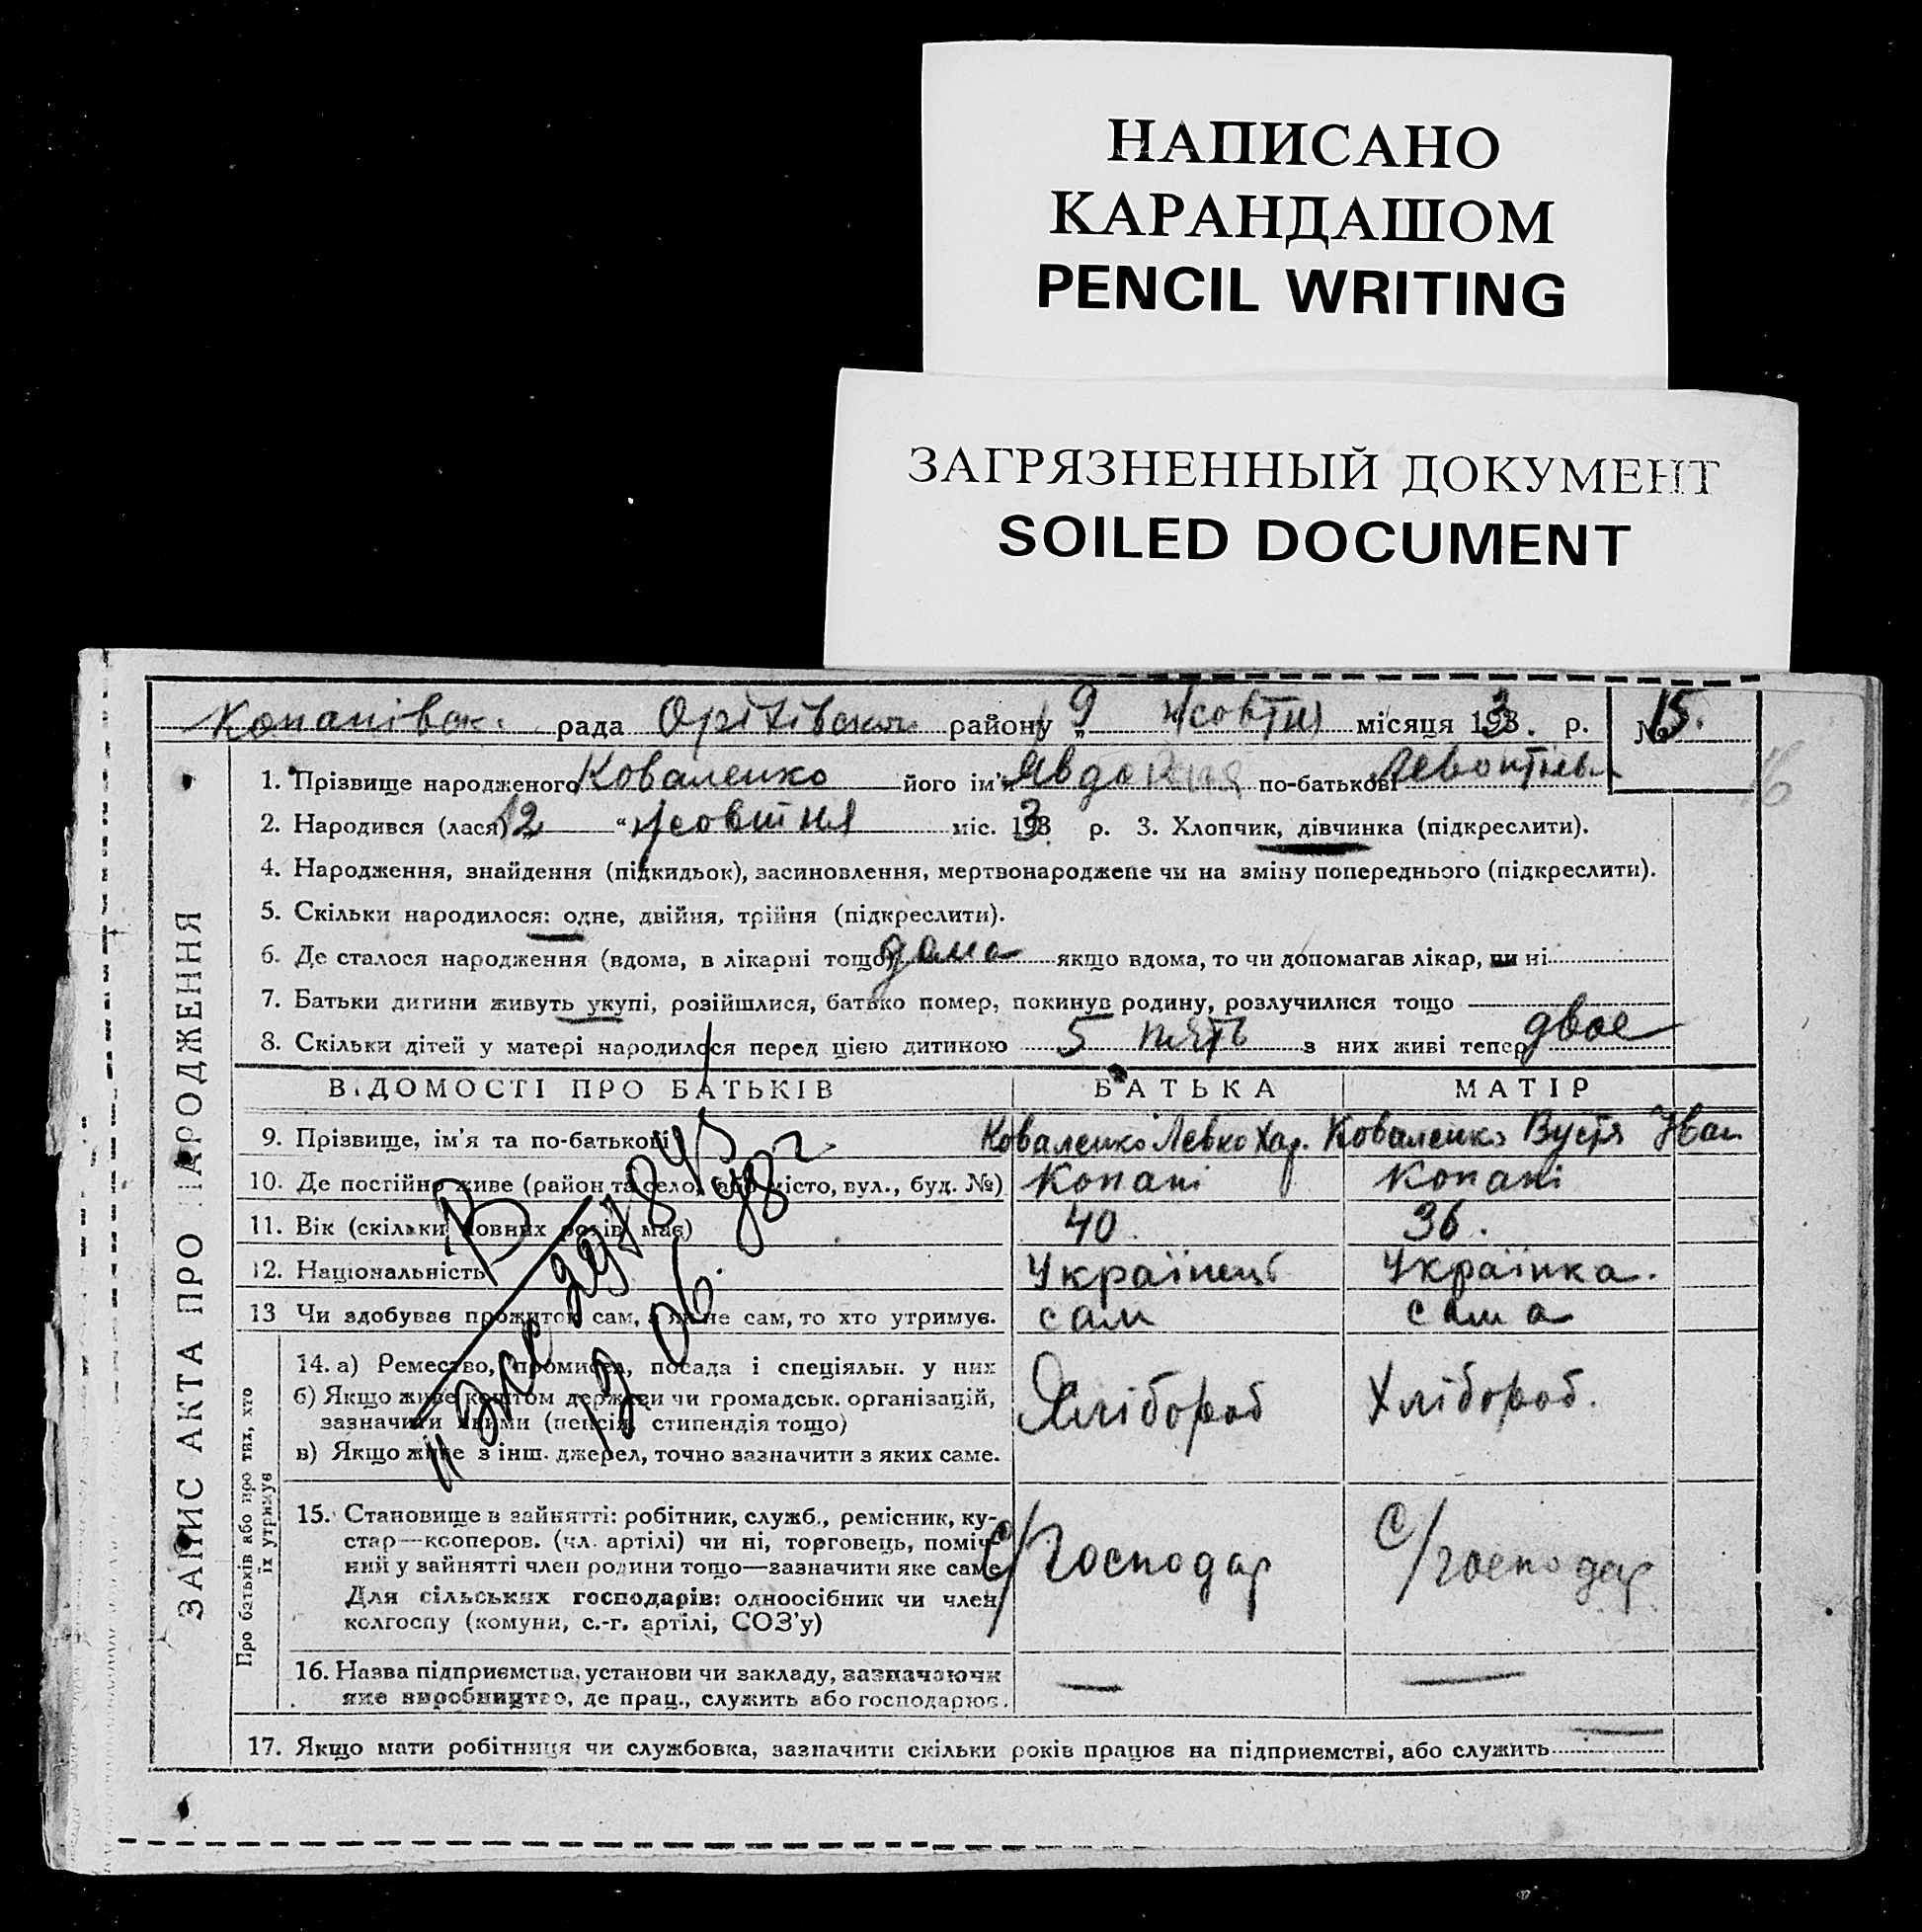 НАПИСАНО
КАРАНДАШОМ
PENCIL WRITING
ЗАГРЯЗНЕННЫЙ ДОКУМЕНТ
SOILED DOCUMENT
Копанівск. рада Оріхівськ району „ 9 жовтня місяця 193 3. р. № 15.
1. Прізвище народженого Коваленко його ім'я Явдокия по-батькові Левонтієв
16
2. Народився (лася) 12 “ жовтня міс. 193 3. р. 3. Хлопчик, дівчинка (підкреслити).
4. Народження, знайдення (підкидьок), засиновлення, мертвонароджене чи на зміну попереднього (підкреслити).
5. Скільки народилося: одне, двійня, трійня (підкреслити).
6. Де сталося народження (вдома, в лікарні тощо) дома якщо вдома, то чи допомагав лікар, чи ні
7. Батьки дитини живуть укупі, розійшлися, батько помер, покинув родину, розлучилися тощо
8. Скільки дітей у матері народилося перед цією дитиною 5 пять з них живі тепер двое
ВІДОМОСТІ ПРО БАТЬКІВ БАТЬКА МАТІР
9. Прізвище, ім'я та по-батькові Коваленко Левко Хар. Коваленко Вустя Іван
10. Де постійно живе (район та село, або місто, вул., буд. №) Копані Копані
11. Вік (скільки повних років має) 40. 36.
12. Національність Українець Українка.
13 Чи здобуває прожиток сам, а як не сам, то хто утримує. сам сама
ЗАПИС АКТА ПРО НАРОДЖЕННЯ
Про батьків або про тих, хто
їх утримує
14. а) Ремество, промисел, посада і спеціяльн. у них
б) Якщо живе коштом держави чи громадськ. організацій,
зазначити якими (пенсія, стипендія тощо)
в) Якщо живе з інш. джерел, точно зазначити з яких саме.
Хлібороб Хлібороб.
15. Становище в зайнятті: робітник, служб., ремісник, ку-
стар—кооперов. (чл. артілі) чи ні, торговець, поміч-
ний у зайнятті член родини тощо—зазначити яке саме
Для сільських господарів: одноосібник чи член
колгоспу (комуни, с.-г. артілі, СОЗ'у)
с/господар с/господар
16. Назва підприємства, установи чи закладу, зазначаючи
яке виробництво, де прац., служить або господарює.
17. Якщо мати робітниця чи службовка, зазначити скільки років працює на підприємстві, або служить